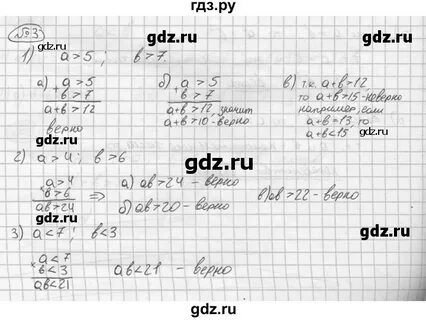 гдз.рф
№3
1) a>5; b>7.
а) + a>5
b>7
a+b>12
верно
б) + a>5
b>7
a+b>12, значит
a+b>10 - верно
в) т.к. a+b>12
то a+b>15 - неверно
например, если
a+b=13, то
a+b<15
2) a>4; b>6
× a>4
b>6
ab>24
⇒ а) ab>24 - верно
б) ab>20 - верно
в) ab>22 - верно
3) a<7; b<3
× a<7
b<3
ab<21
ab<21 - верно
gdz.ru
gdz.ru
gdz.ru
gdz.ru
gdz.ru
gdz.ru
gdz.ru
gdz.ru
gdz.ru
gdz.ru
гдз.рф